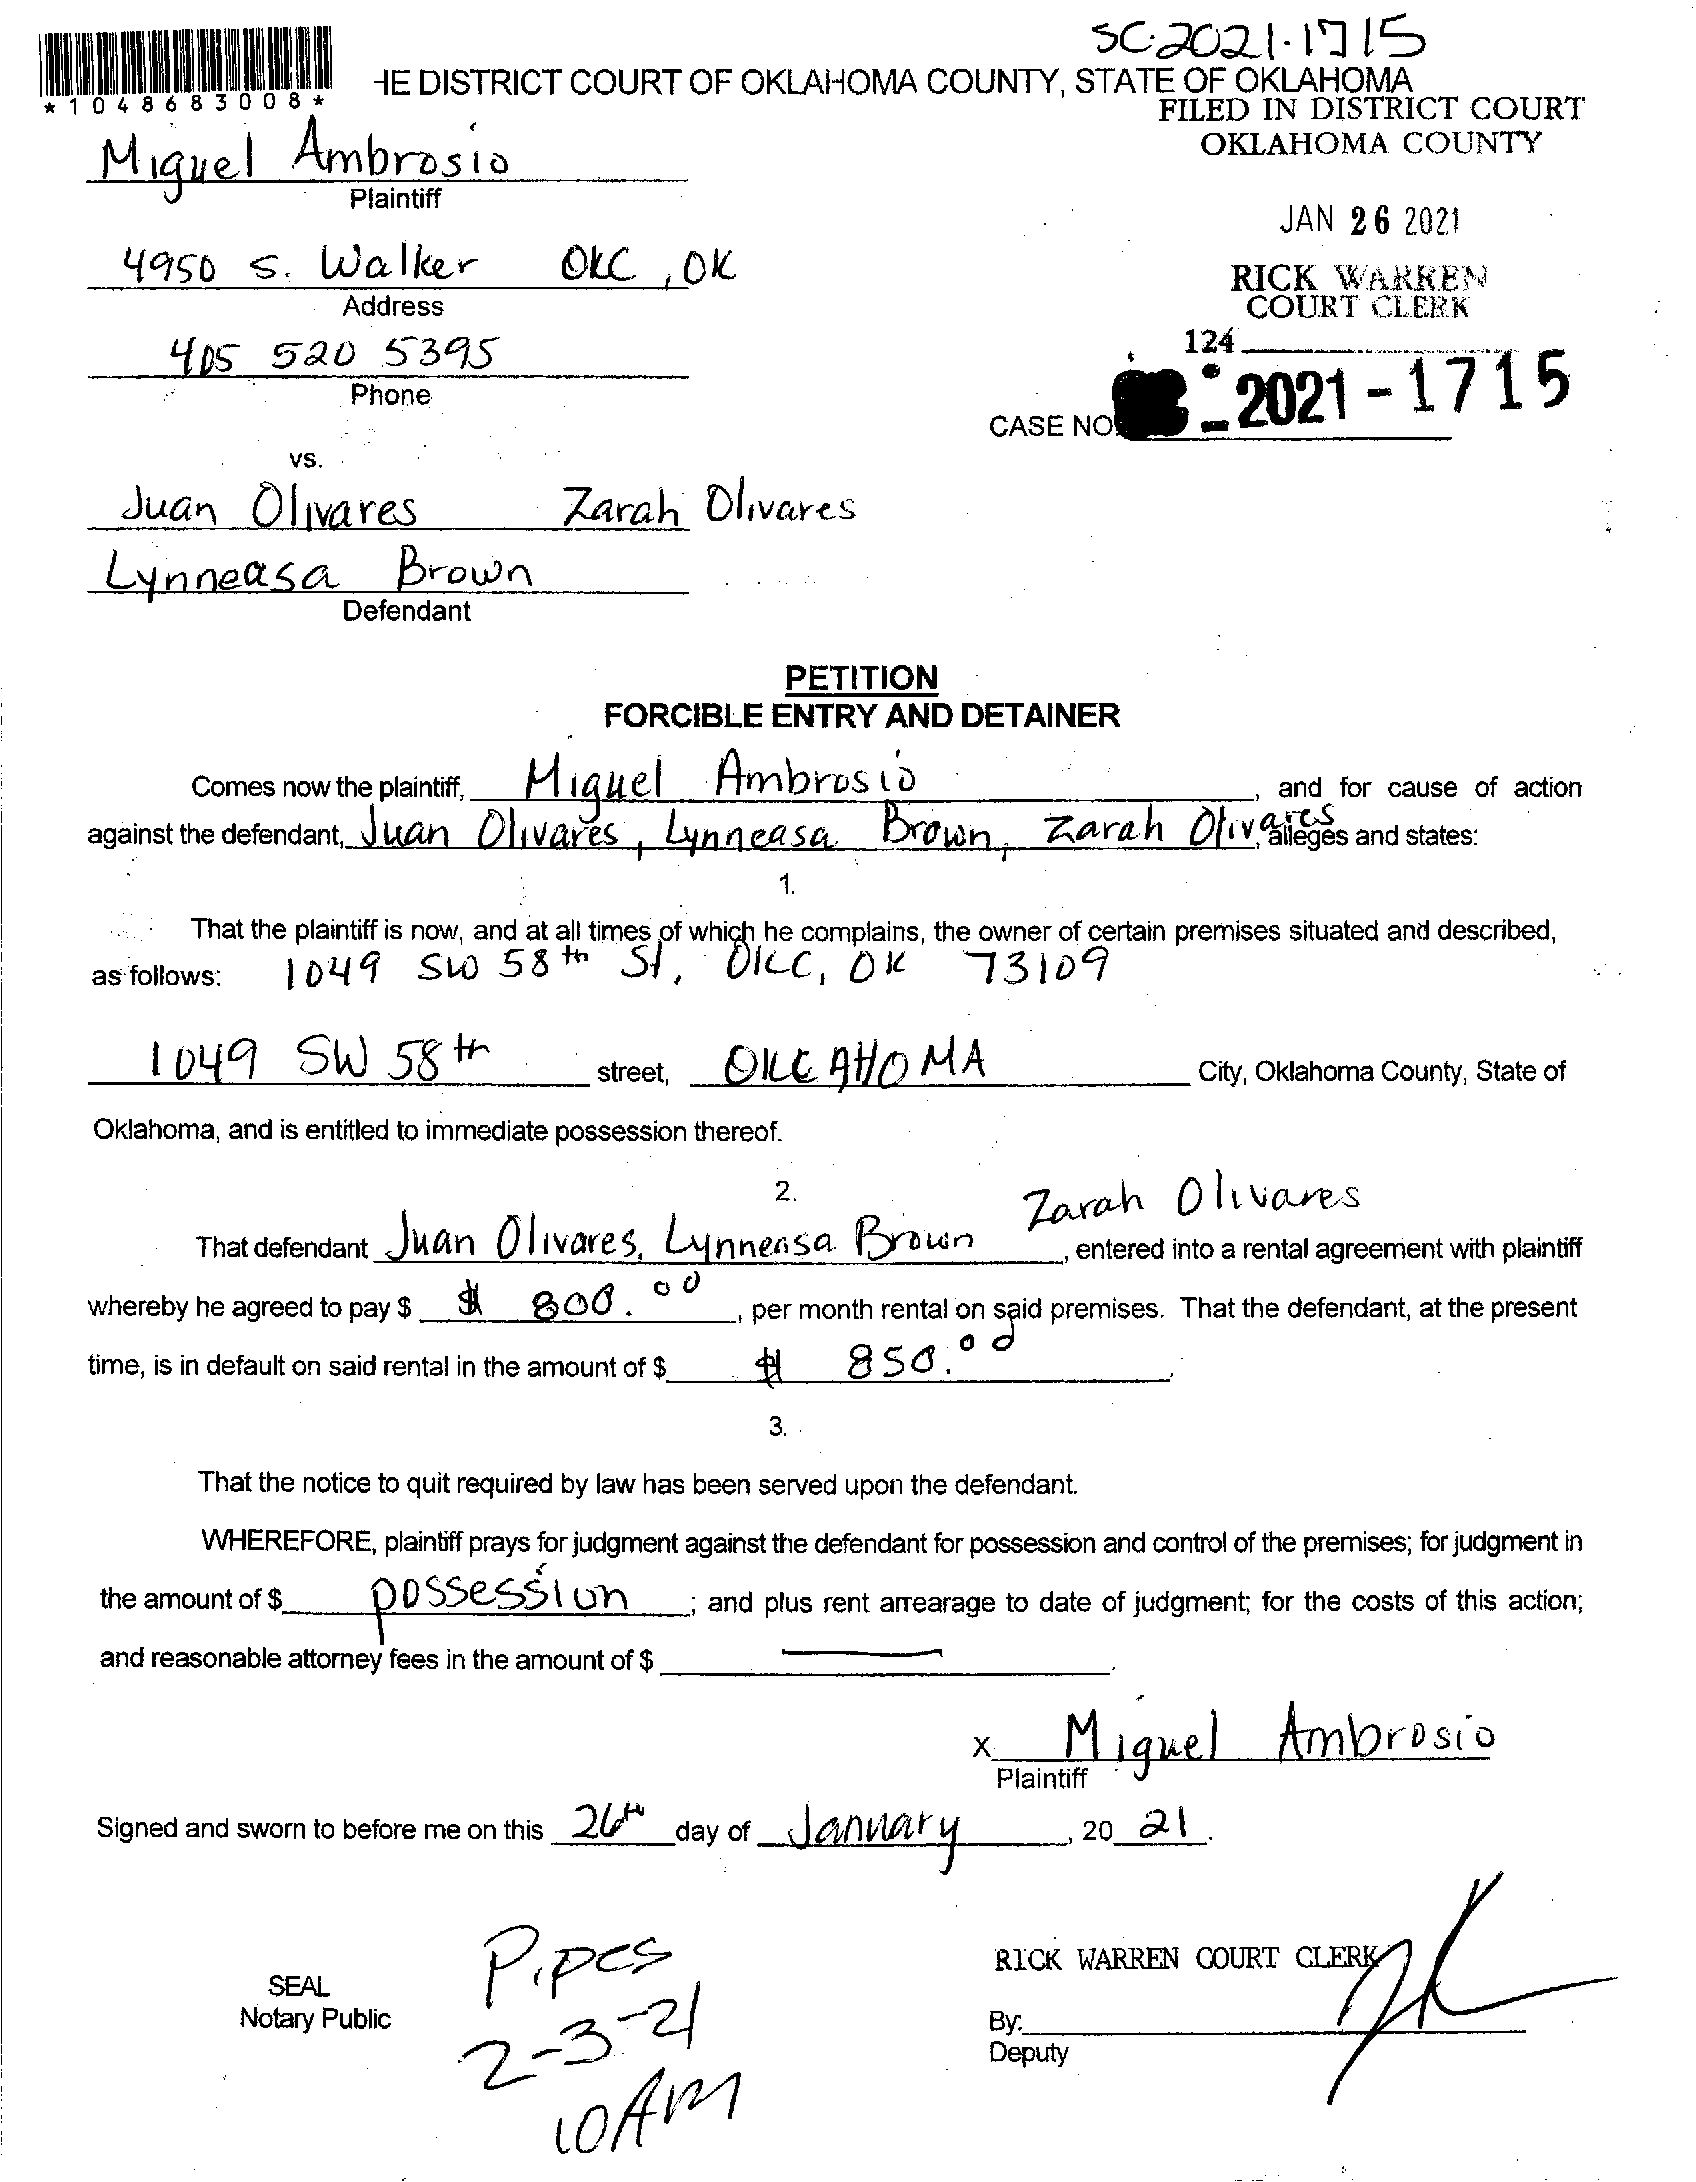 SC-2021-1715
HE DISTRICT COURT OF OKLAHOMA COUNTY, STATE OF OKLAHOMA
*1048683008*
FILED IN DISTRICT COURT
OKLAHOMA COUNTY
Miguel Ambrosio
Plaintiff
JAN 26 2021
4950 S. Walker OKC, OK
Address
RICK WARREN
COURT CLERK
405 520 5395
Phone
124
CASE NO. 2021-1715
vs.
Juan Olivares Zarah Olivares
Lynneasa Brown
Defendant
PETITION
FORCIBLE ENTRY AND DETAINER
Comes now the plaintiff, Miguel Ambrosio, and for cause of action
against the defendant, Juan Olivares, Lynneasa Brown, Zarah Olivares, alleges and states:
1.
That the plaintiff is now, and at all times of which he complains, the owner of certain premises situated and described,
as follows: 1049 SW 58th St, OKC, OK 73109
1049 SW 58th street, OKLAHOMA City, Oklahoma County, State of
Oklahoma, and is entitled to immediate possession thereof.
2.
Zarah Olivares
That defendant Juan Olivares, Lynneasa Brown, entered into a rental agreement with plaintiff
whereby he agreed to pay $ $ 800.00, per month rental on said premises. That the defendant, at the present
time, is in default on said rental in the amount of $ $ 850.00.
3.
That the notice to quit required by law has been served upon the defendant.
WHEREFORE, plaintiff prays for judgment against the defendant for possession and control of the premises; for judgment in
the amount of $ possession; and plus rent arrearage to date of judgment; for the costs of this action;
and reasonable attorney fees in the amount of $ —.
x Miguel Ambrosio
Plaintiff
Signed and sworn to before me on this 26th day of January, 20 21.
Pipes
RICK WARREN COURT CLERK
SEAL
Notary Public
2-3-21
By:
Deputy
10AM